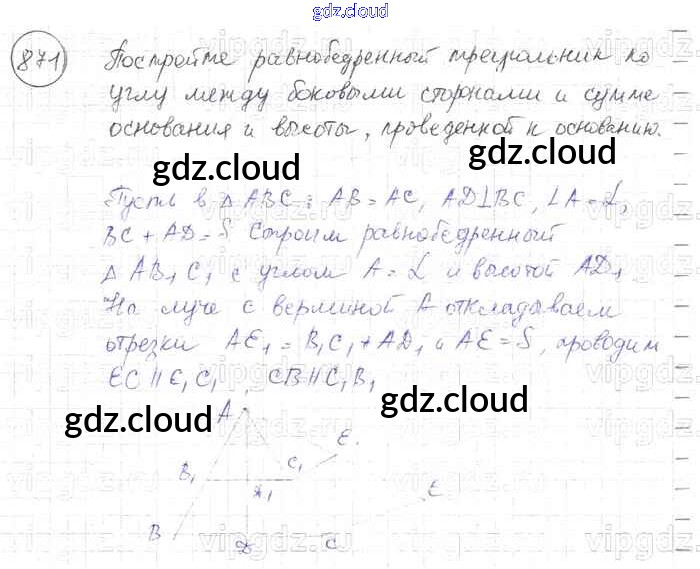 gdz.cloud
871
Постройте равнобедренный треугольник по
углу между боковыми сторонами и сумме
основания и высоты, проведенной к основанию.
gdz.cloud gdz.cloud
Пусть в △ABC: AB = AC, AD⊥BC, ∠A = α,
BC + AD = S Строим равнобедренный
△ AB₁ C₁ с углом A = α и высотой AD₁
На луче с вершиной A откладываем
отрезки AE₁ = B₁C₁ + AD₁ и AE = S, проводим
EC ∥ E₁C₁, CB ∥ C₁B₁
gdz.cloud gdz.cloud
A
E.
B₁ C₁
E
B D C
gdz.cloud gdz.cloud